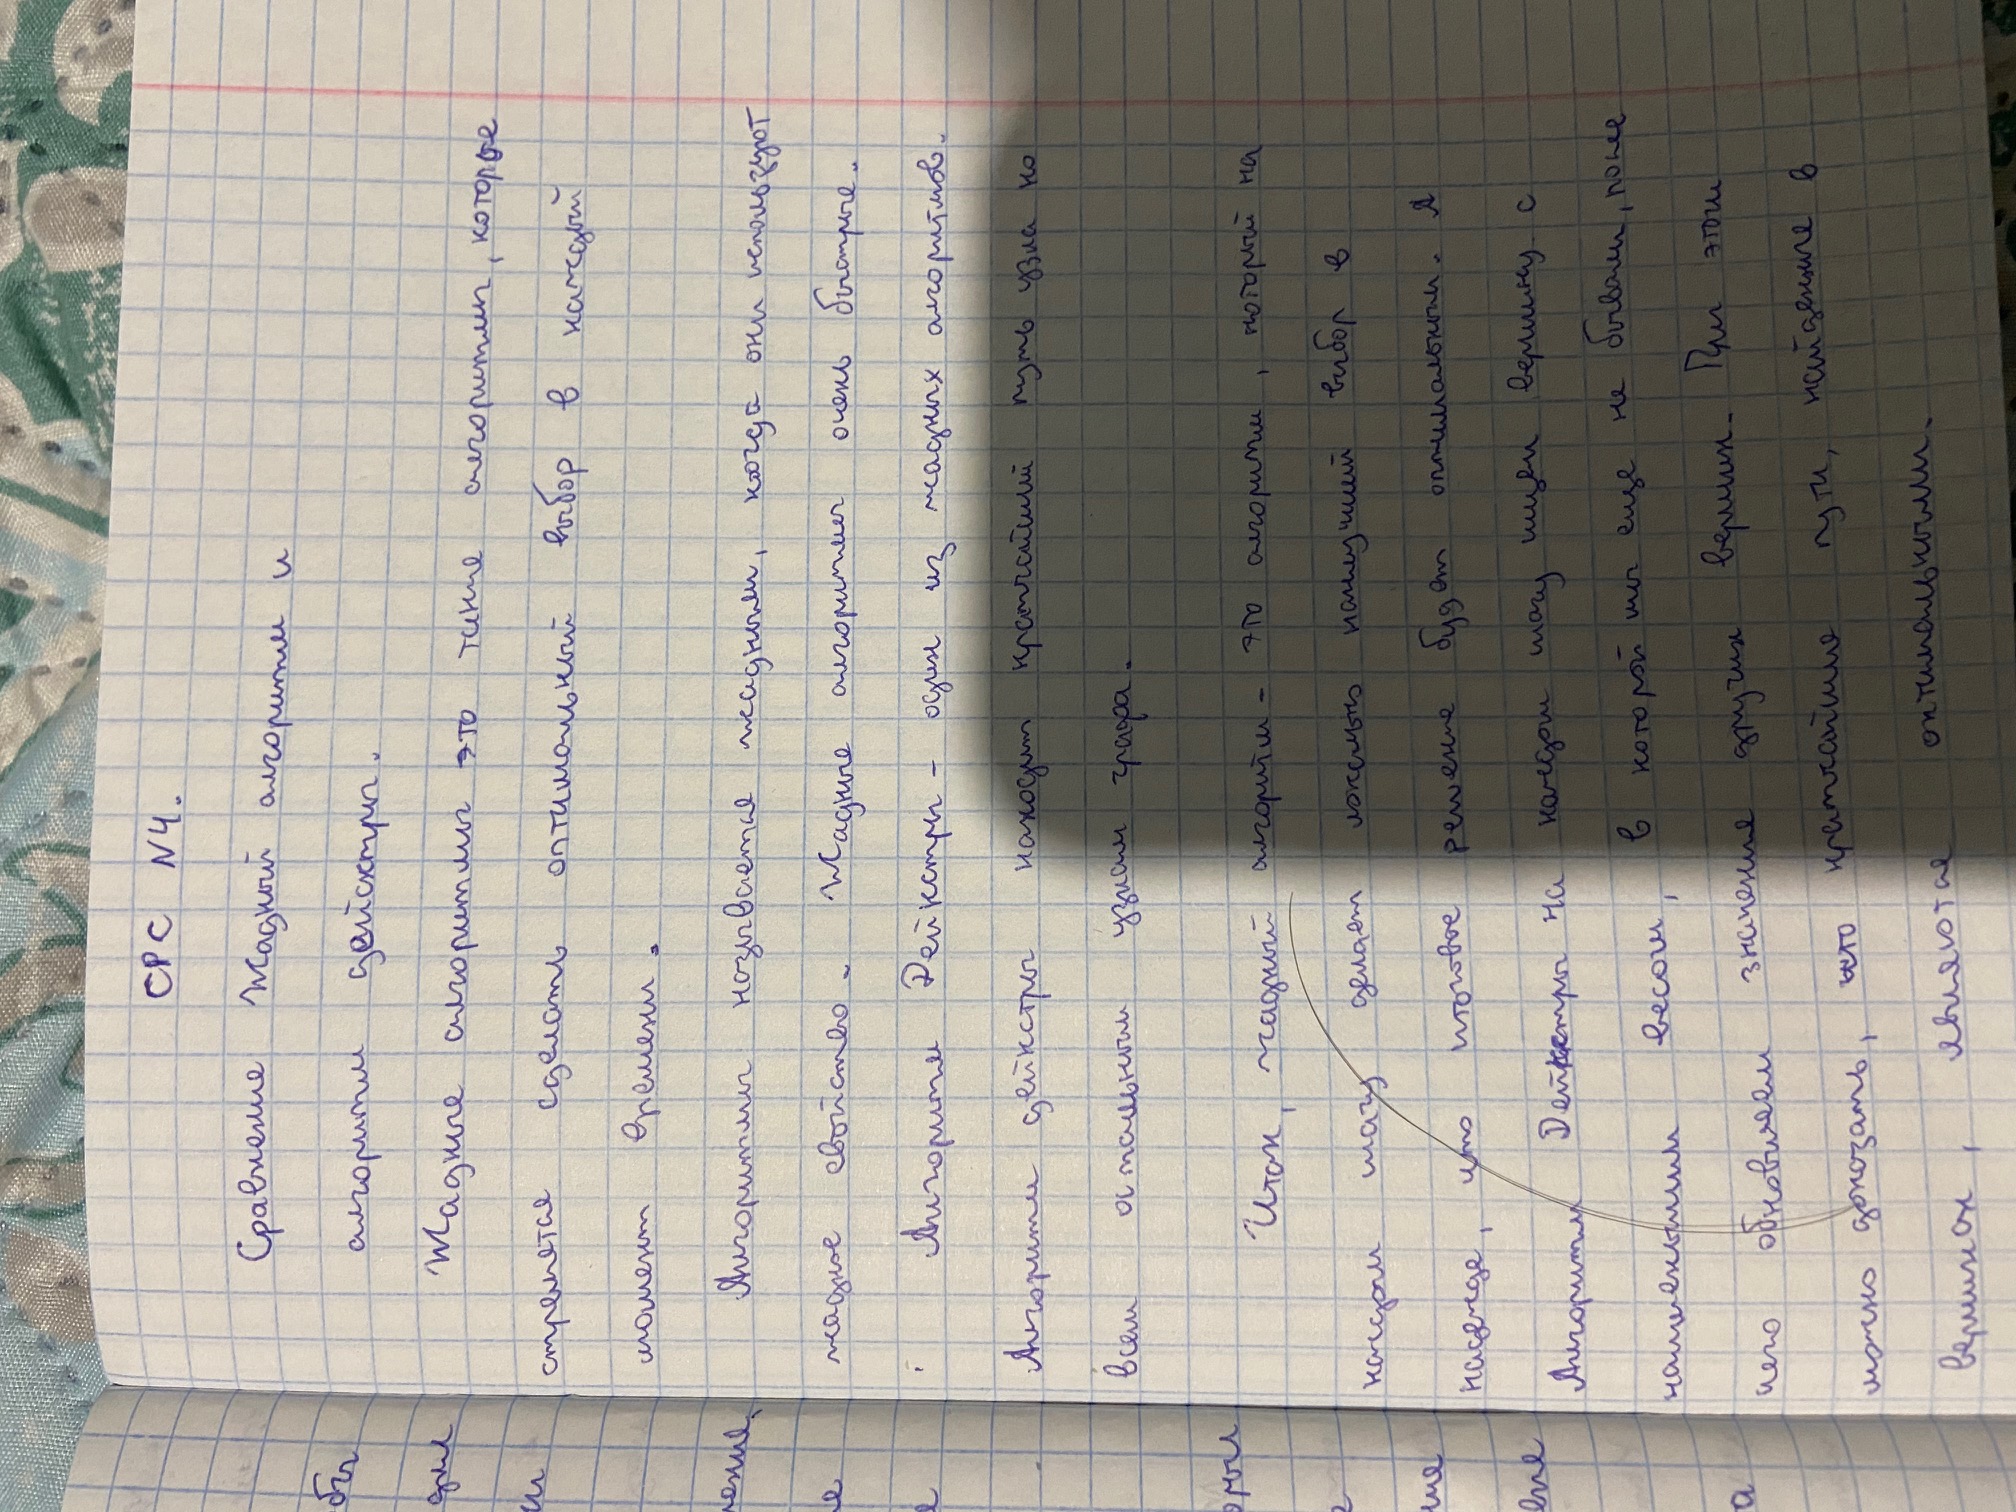 СРС N4.
Сравнение Жадный алгоритм и
алгоритм дейскстры.
Жадные алгоритмы это такие алгоритмы, которые
стремятся сделать оптимальный выбор в каждый
момент времени.
Алгоритмы называется жадными, когда они используют
жадное свойство. Жадные алгоритмы очень быстрые.
Алгоритм Дейкстры - один из жадных алгоритмов.
Алгоритм дейкстры находит кратчайший путь узла ко
всем остальным узлам графа.
Итак, жадный алгоритм - это алгоритм, который на
каждом шагу делает локально наилучший выбор в
надежде, что итоговое решение будет оптимальным. А
Алгоритм Дейкстры на каждом шагу ищем вершину с
наименьшим весом, в которой мы еще не бывали, после
чего обновляем значения других вершин. При этом
можно доказать, что кратчайшие пути, найденные в
вершинах, являются оптимальными.
бы
для